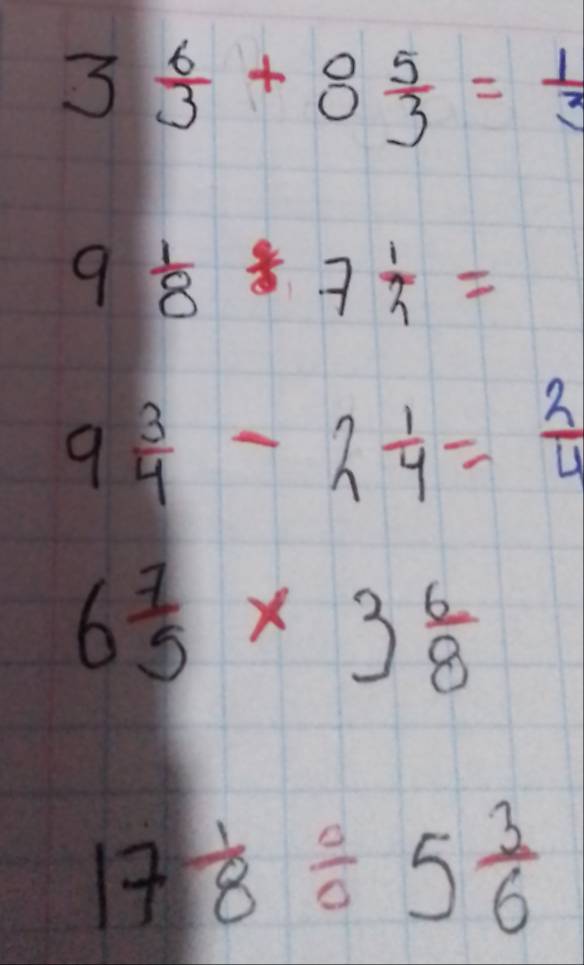 3 6/3 + 8 5/3 = 1/3
9 1/8 7 1/2 =
9 3/4 - 2 1/4 = 2/4
6 7/5 × 3 6/8
17 1/8 ÷ 5 3/6